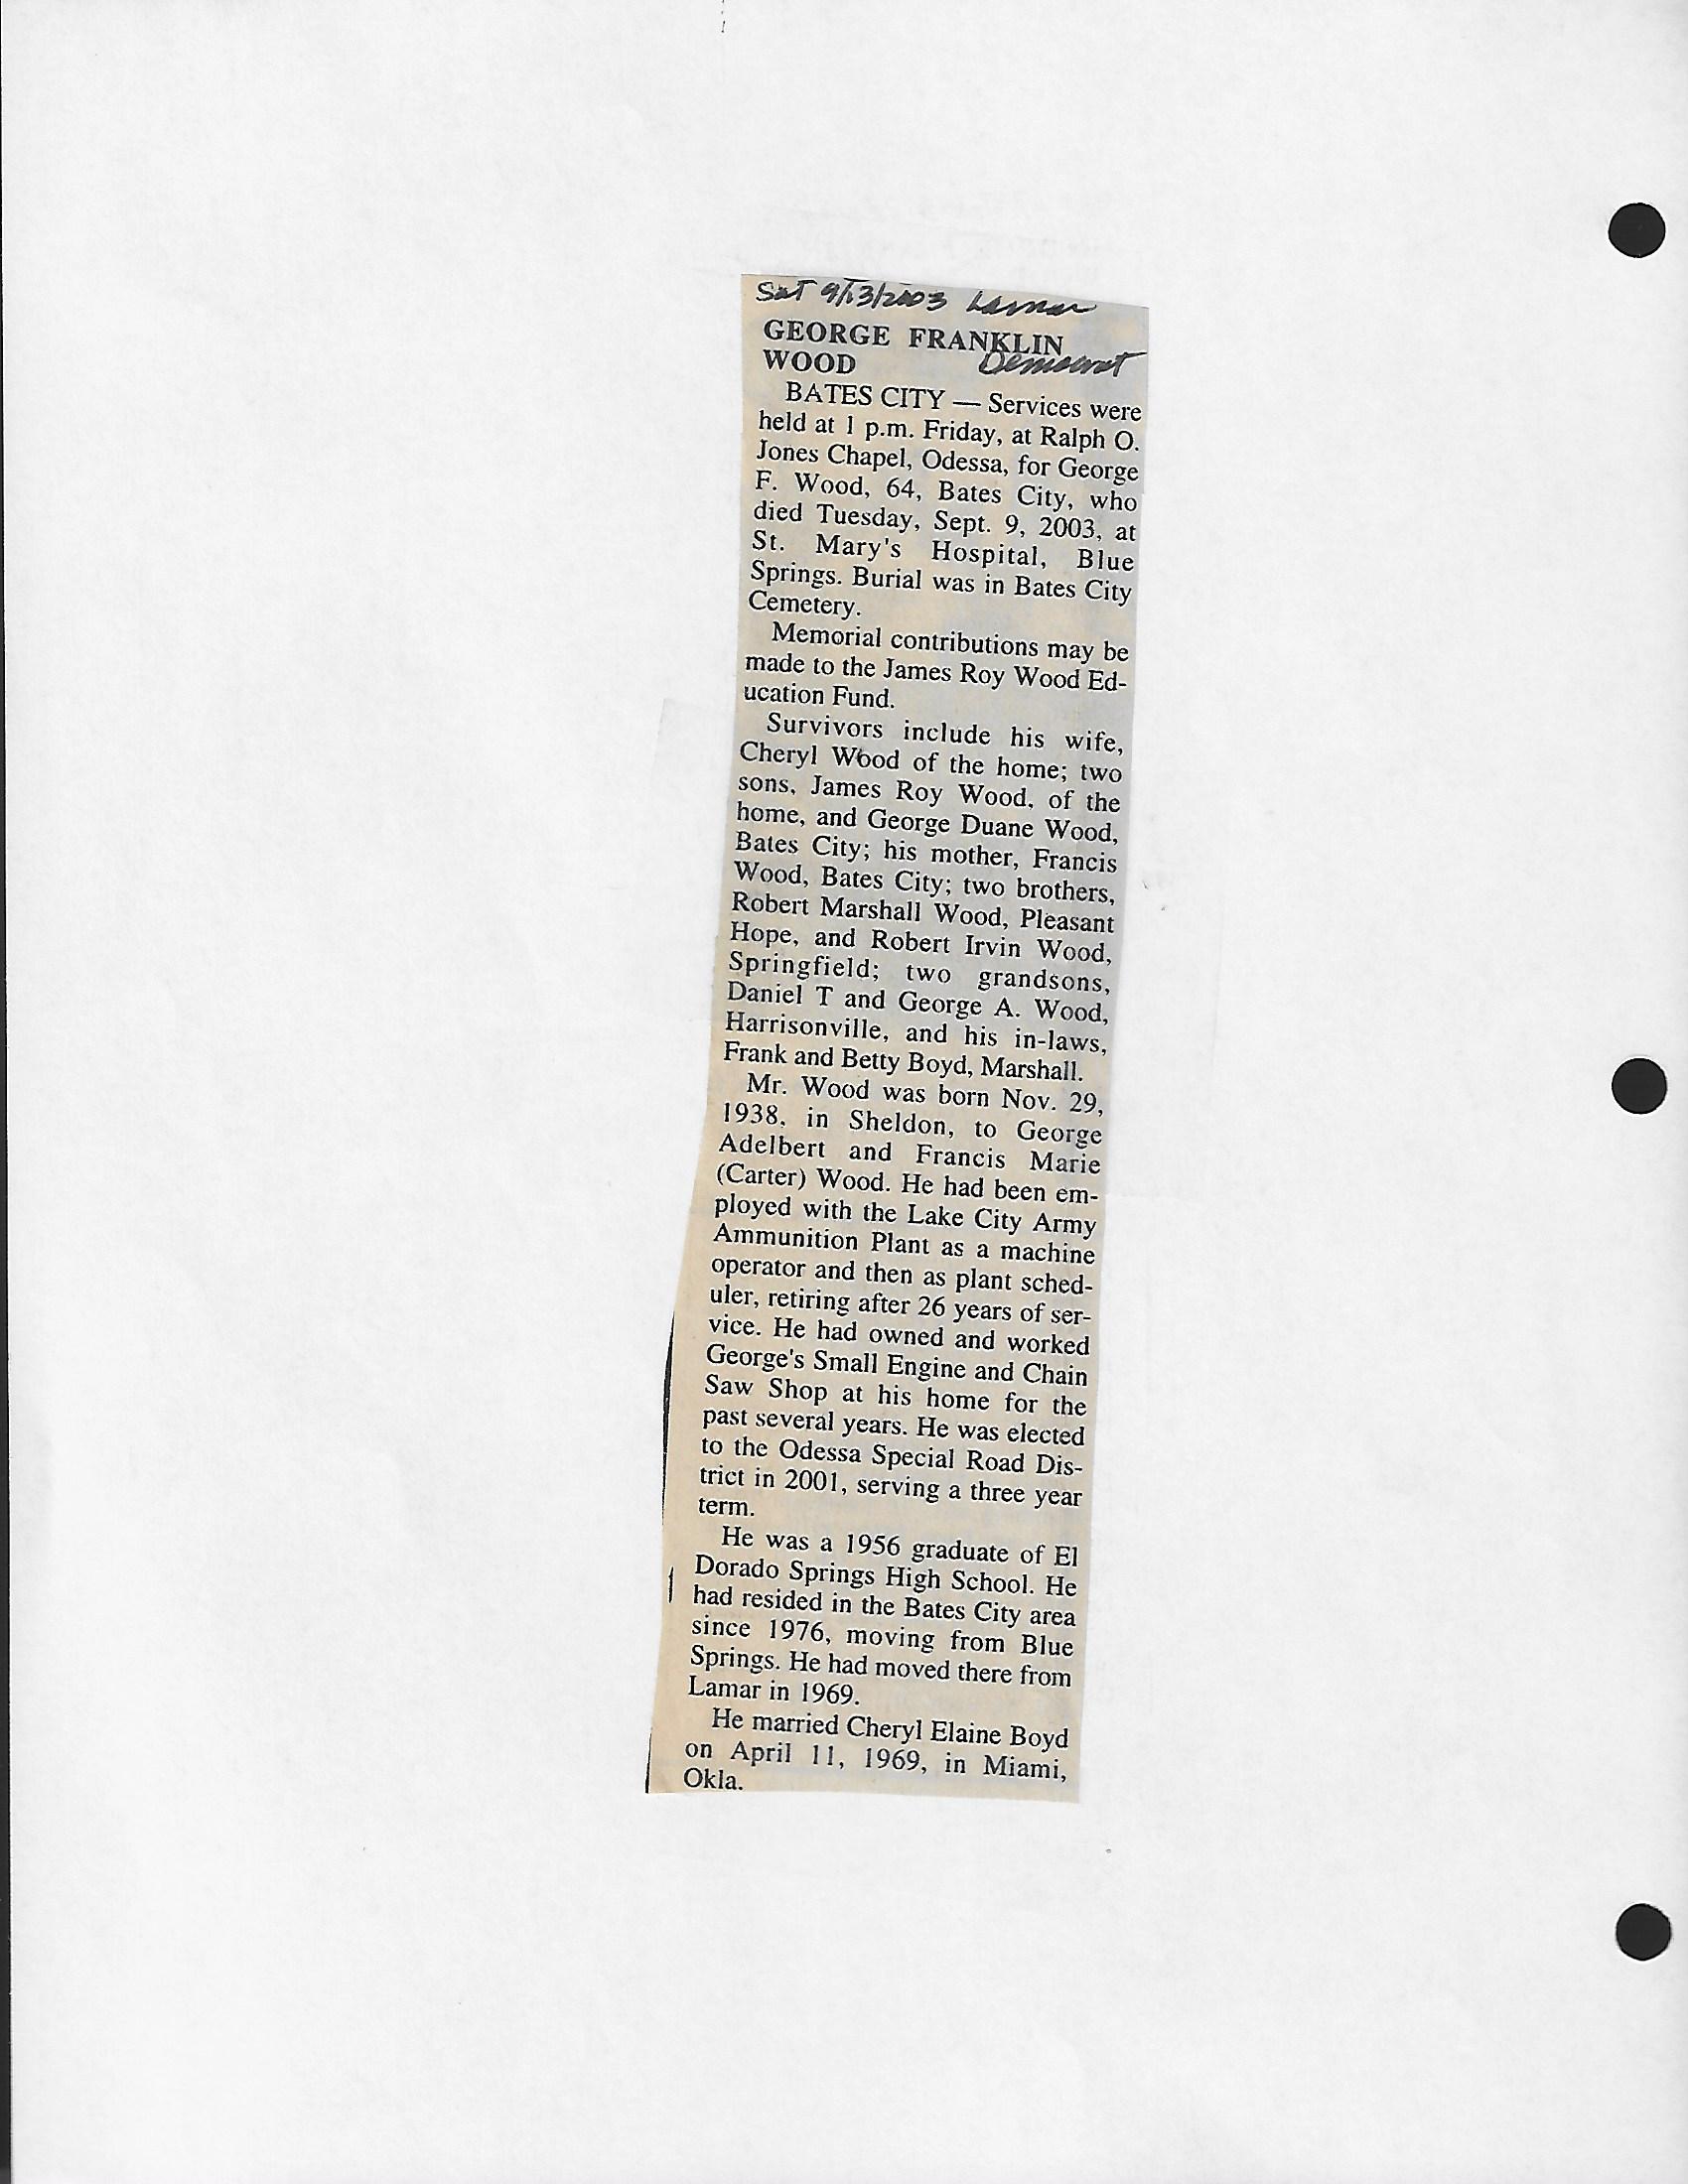 Sat 9/13/2003 Lamar
GEORGE FRANKLIN
WOOD Democrat
BATES CITY — Services were
held at 1 p.m. Friday, at Ralph O.
Jones Chapel, Odessa, for George
F. Wood, 64, Bates City, who
died Tuesday, Sept. 9, 2003, at
St. Mary's Hospital, Blue
Springs. Burial was in Bates City
Cemetery.
Memorial contributions may be
made to the James Roy Wood Ed-
ucation Fund.
Survivors include his wife,
Cheryl Wood of the home; two
sons, James Roy Wood, of the
home, and George Duane Wood,
Bates City; his mother, Francis
Wood, Bates City; two brothers,
Robert Marshall Wood, Pleasant
Hope, and Robert Irvin Wood,
Springfield; two grandsons,
Daniel T and George A. Wood,
Harrisonville, and his in-laws,
Frank and Betty Boyd, Marshall.
Mr. Wood was born Nov. 29,
1938, in Sheldon, to George
Adelbert and Francis Marie
(Carter) Wood. He had been em-
ployed with the Lake City Army
Ammunition Plant as a machine
operator and then as plant sched-
uler, retiring after 26 years of ser-
vice. He had owned and worked
George's Small Engine and Chain
Saw Shop at his home for the
past several years. He was elected
to the Odessa Special Road Dis-
trict in 2001, serving a three year
term.
He was a 1956 graduate of El
Dorado Springs High School. He
had resided in the Bates City area
since 1976, moving from Blue
Springs. He had moved there from
Lamar in 1969.
He married Cheryl Elaine Boyd
on April 11, 1969, in Miami,
Okla.